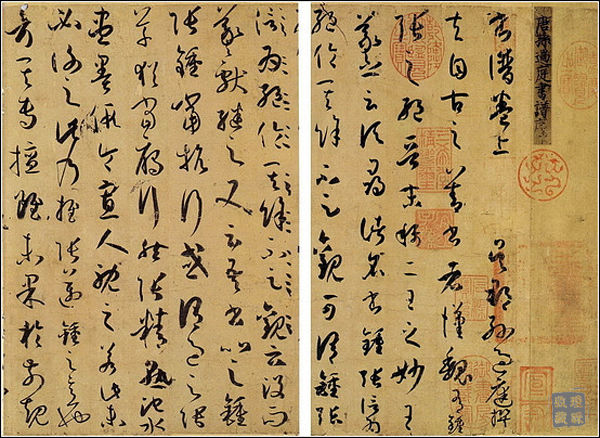 唐孫過庭書譜序
書譜卷上 吳郡孫過庭撰
夫自古之善書者漢魏有鍾
張之絕晉末稱二王之妙王
羲之云頃尋諸名書鍾張信為
絕倫其餘不足觀可謂鍾張
信為絕倫其餘不足觀云沒而
羲獻繼之又云吾書比之鍾
張鍾當抗行或謂過之張
草猶當雁行然張精熟池水
盡墨假令寡人耽之若此未
必謝之此乃推張邁鍾之意也
考其專擅雖未果於前規